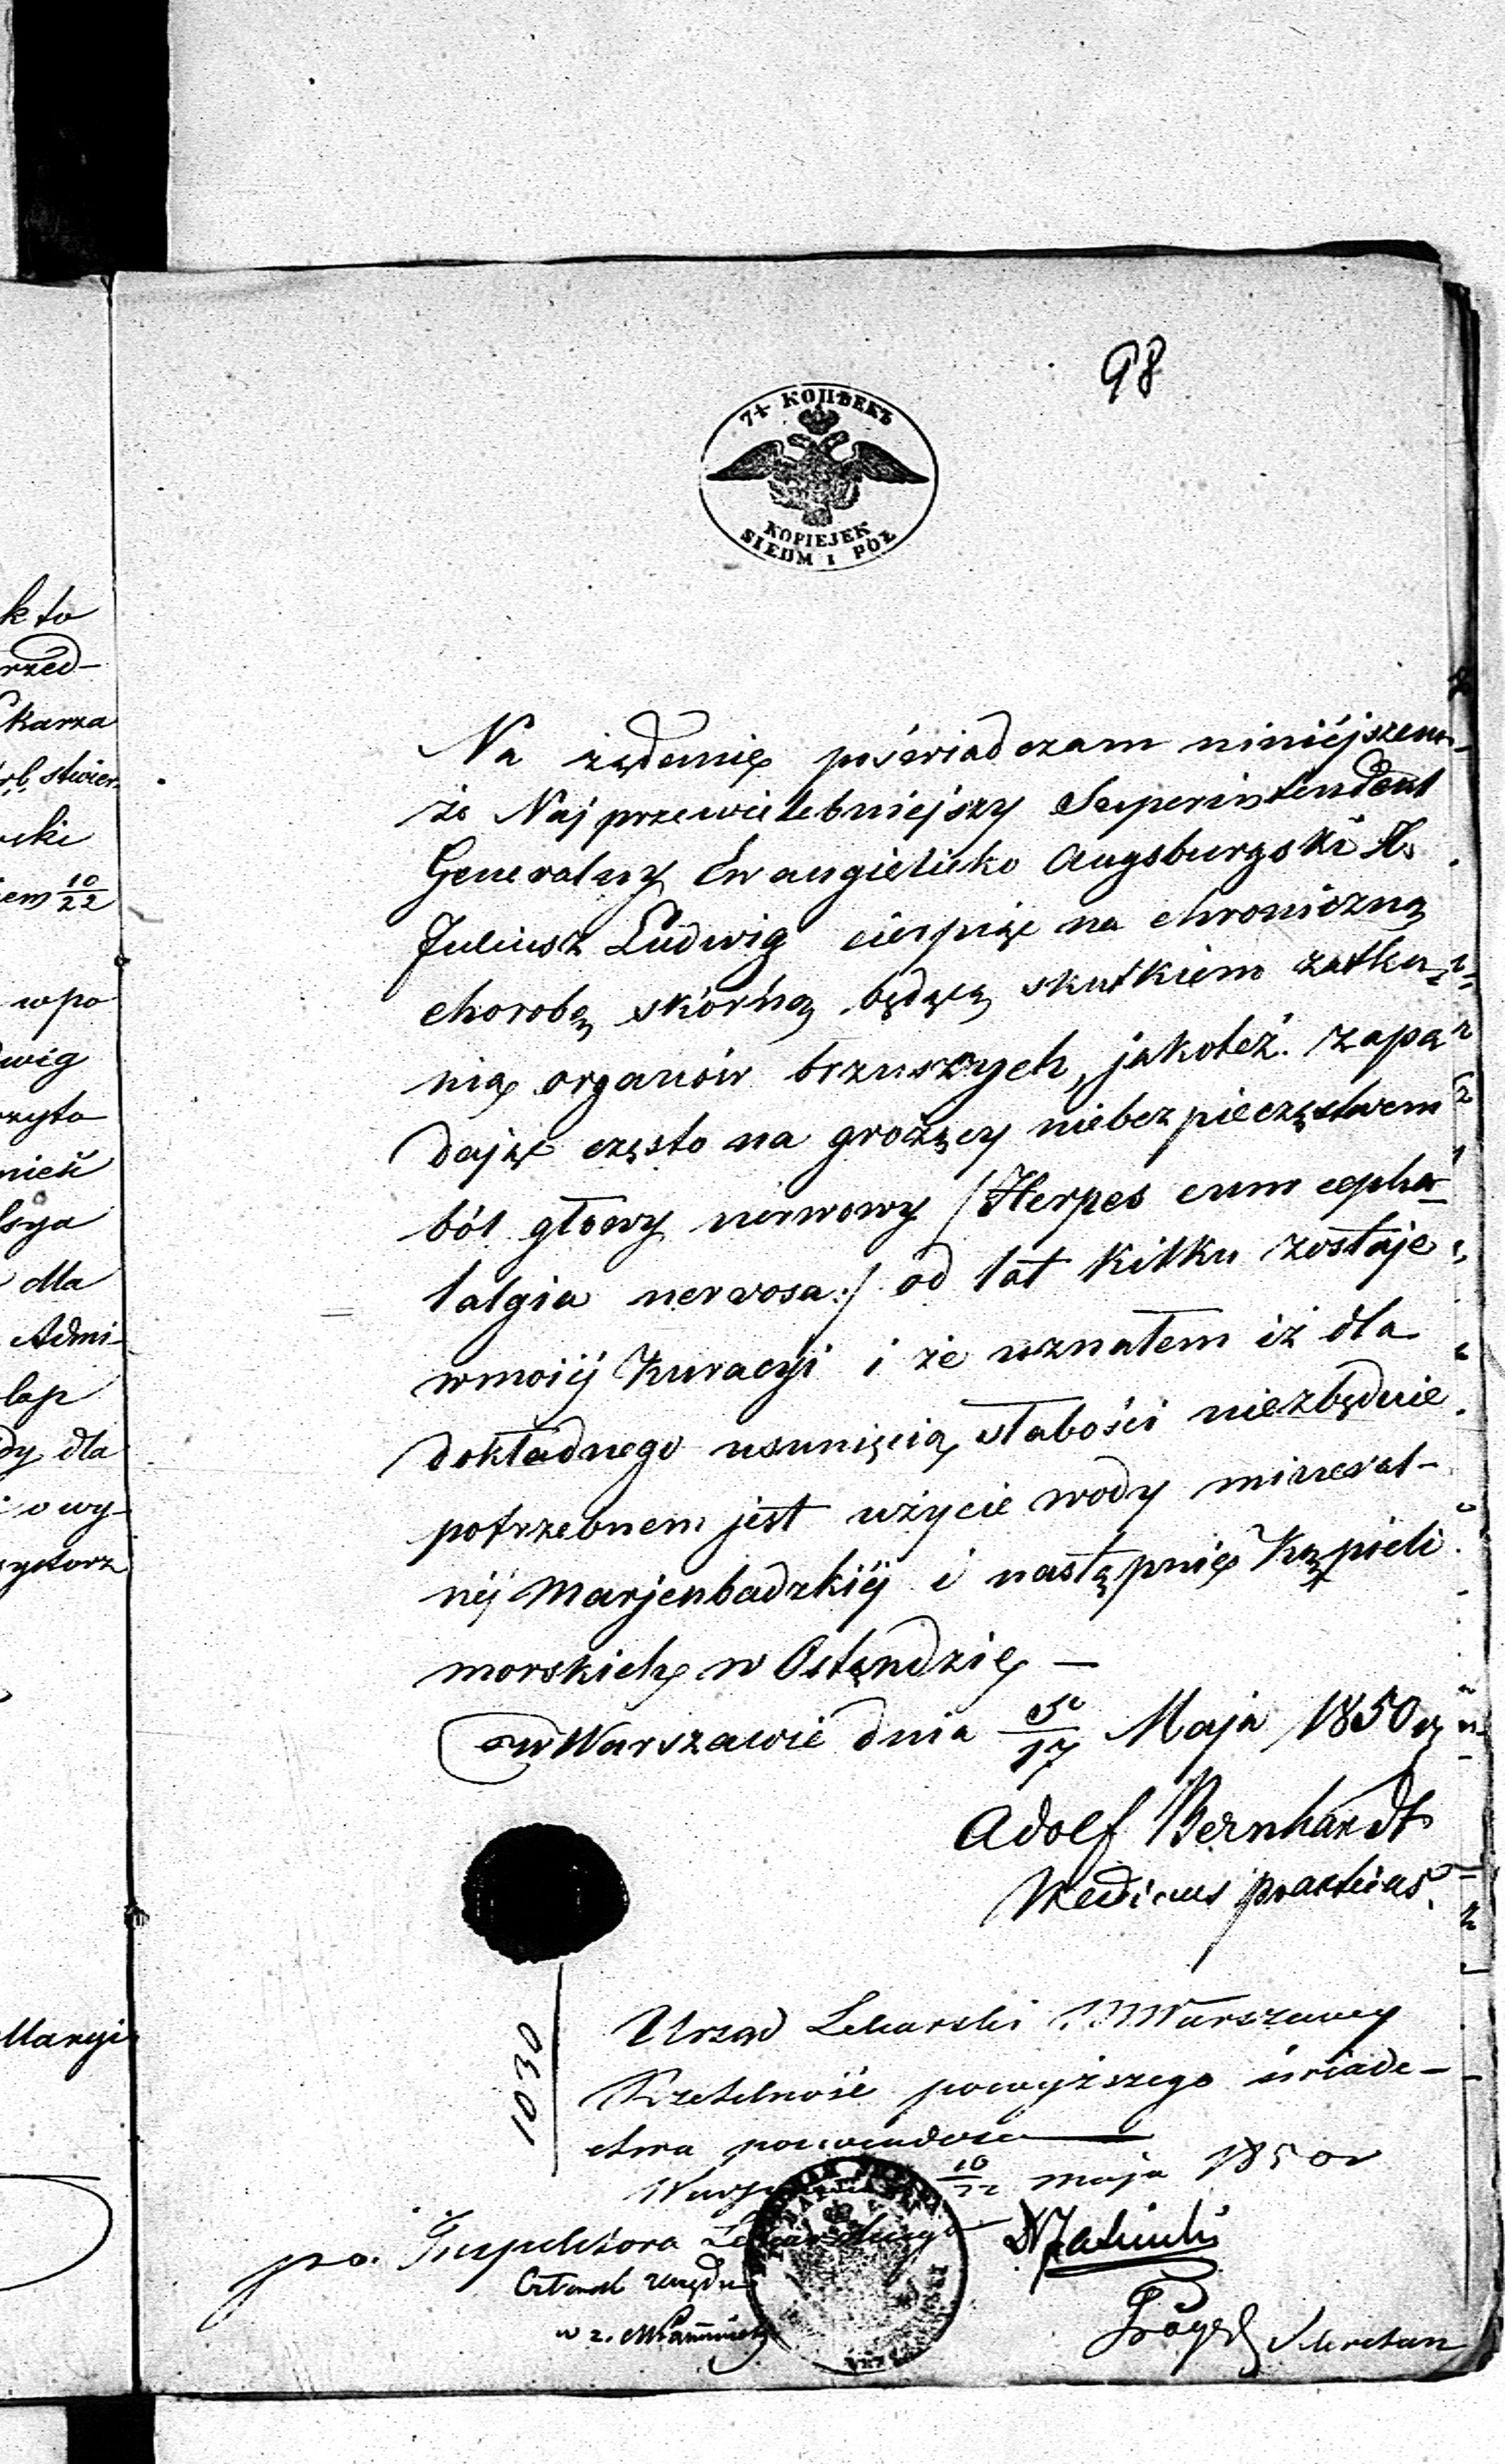 98
7½ КОПѢЕКЪ
KOPIEJEK
SIEDM I PÓŁ
k to
rzed-
karza
stwier
10/22
wpo
wig
zyta
dla
Admi-
dy dla
o wy-
Maryi
Na żądanie poświadczam niniéjszem
że Najprzewielebniejszy Superintendent
Generalny Ewangielicko Augsburgski X.
Juliusz Ludwig cierpiąc na chroniczną
chorobę skórną będącą skutkiem zatka-
nia organów brzusznych, jakoteż zapa
dając często na grożący niebezpieczęstwem
ból głowy nerwowy /:Herpes cum cepha-
lalgia nervosa:/ od lat kilku zostaje
w moiéj kuracyi i że uznałem iż dla
dokładnego usunięcia słabości niezbędnie
potrzebnem jest użycie wody mineral-
néj Marjenbadzkiéj i następnie kąpieli
morskich w Ostendzie —
w Warszawie dnia 5/17 Maja 1850 r
Adolf Bernhardt
Medicus practicus.
1030
Urząd Lekarski M Warszawy
Rzetelność powyższego świade-
ctwa poświadcza
10/22 maja 1850 r
p.o. Inspektora Lekarskiego
Członek Urzędu
w z.